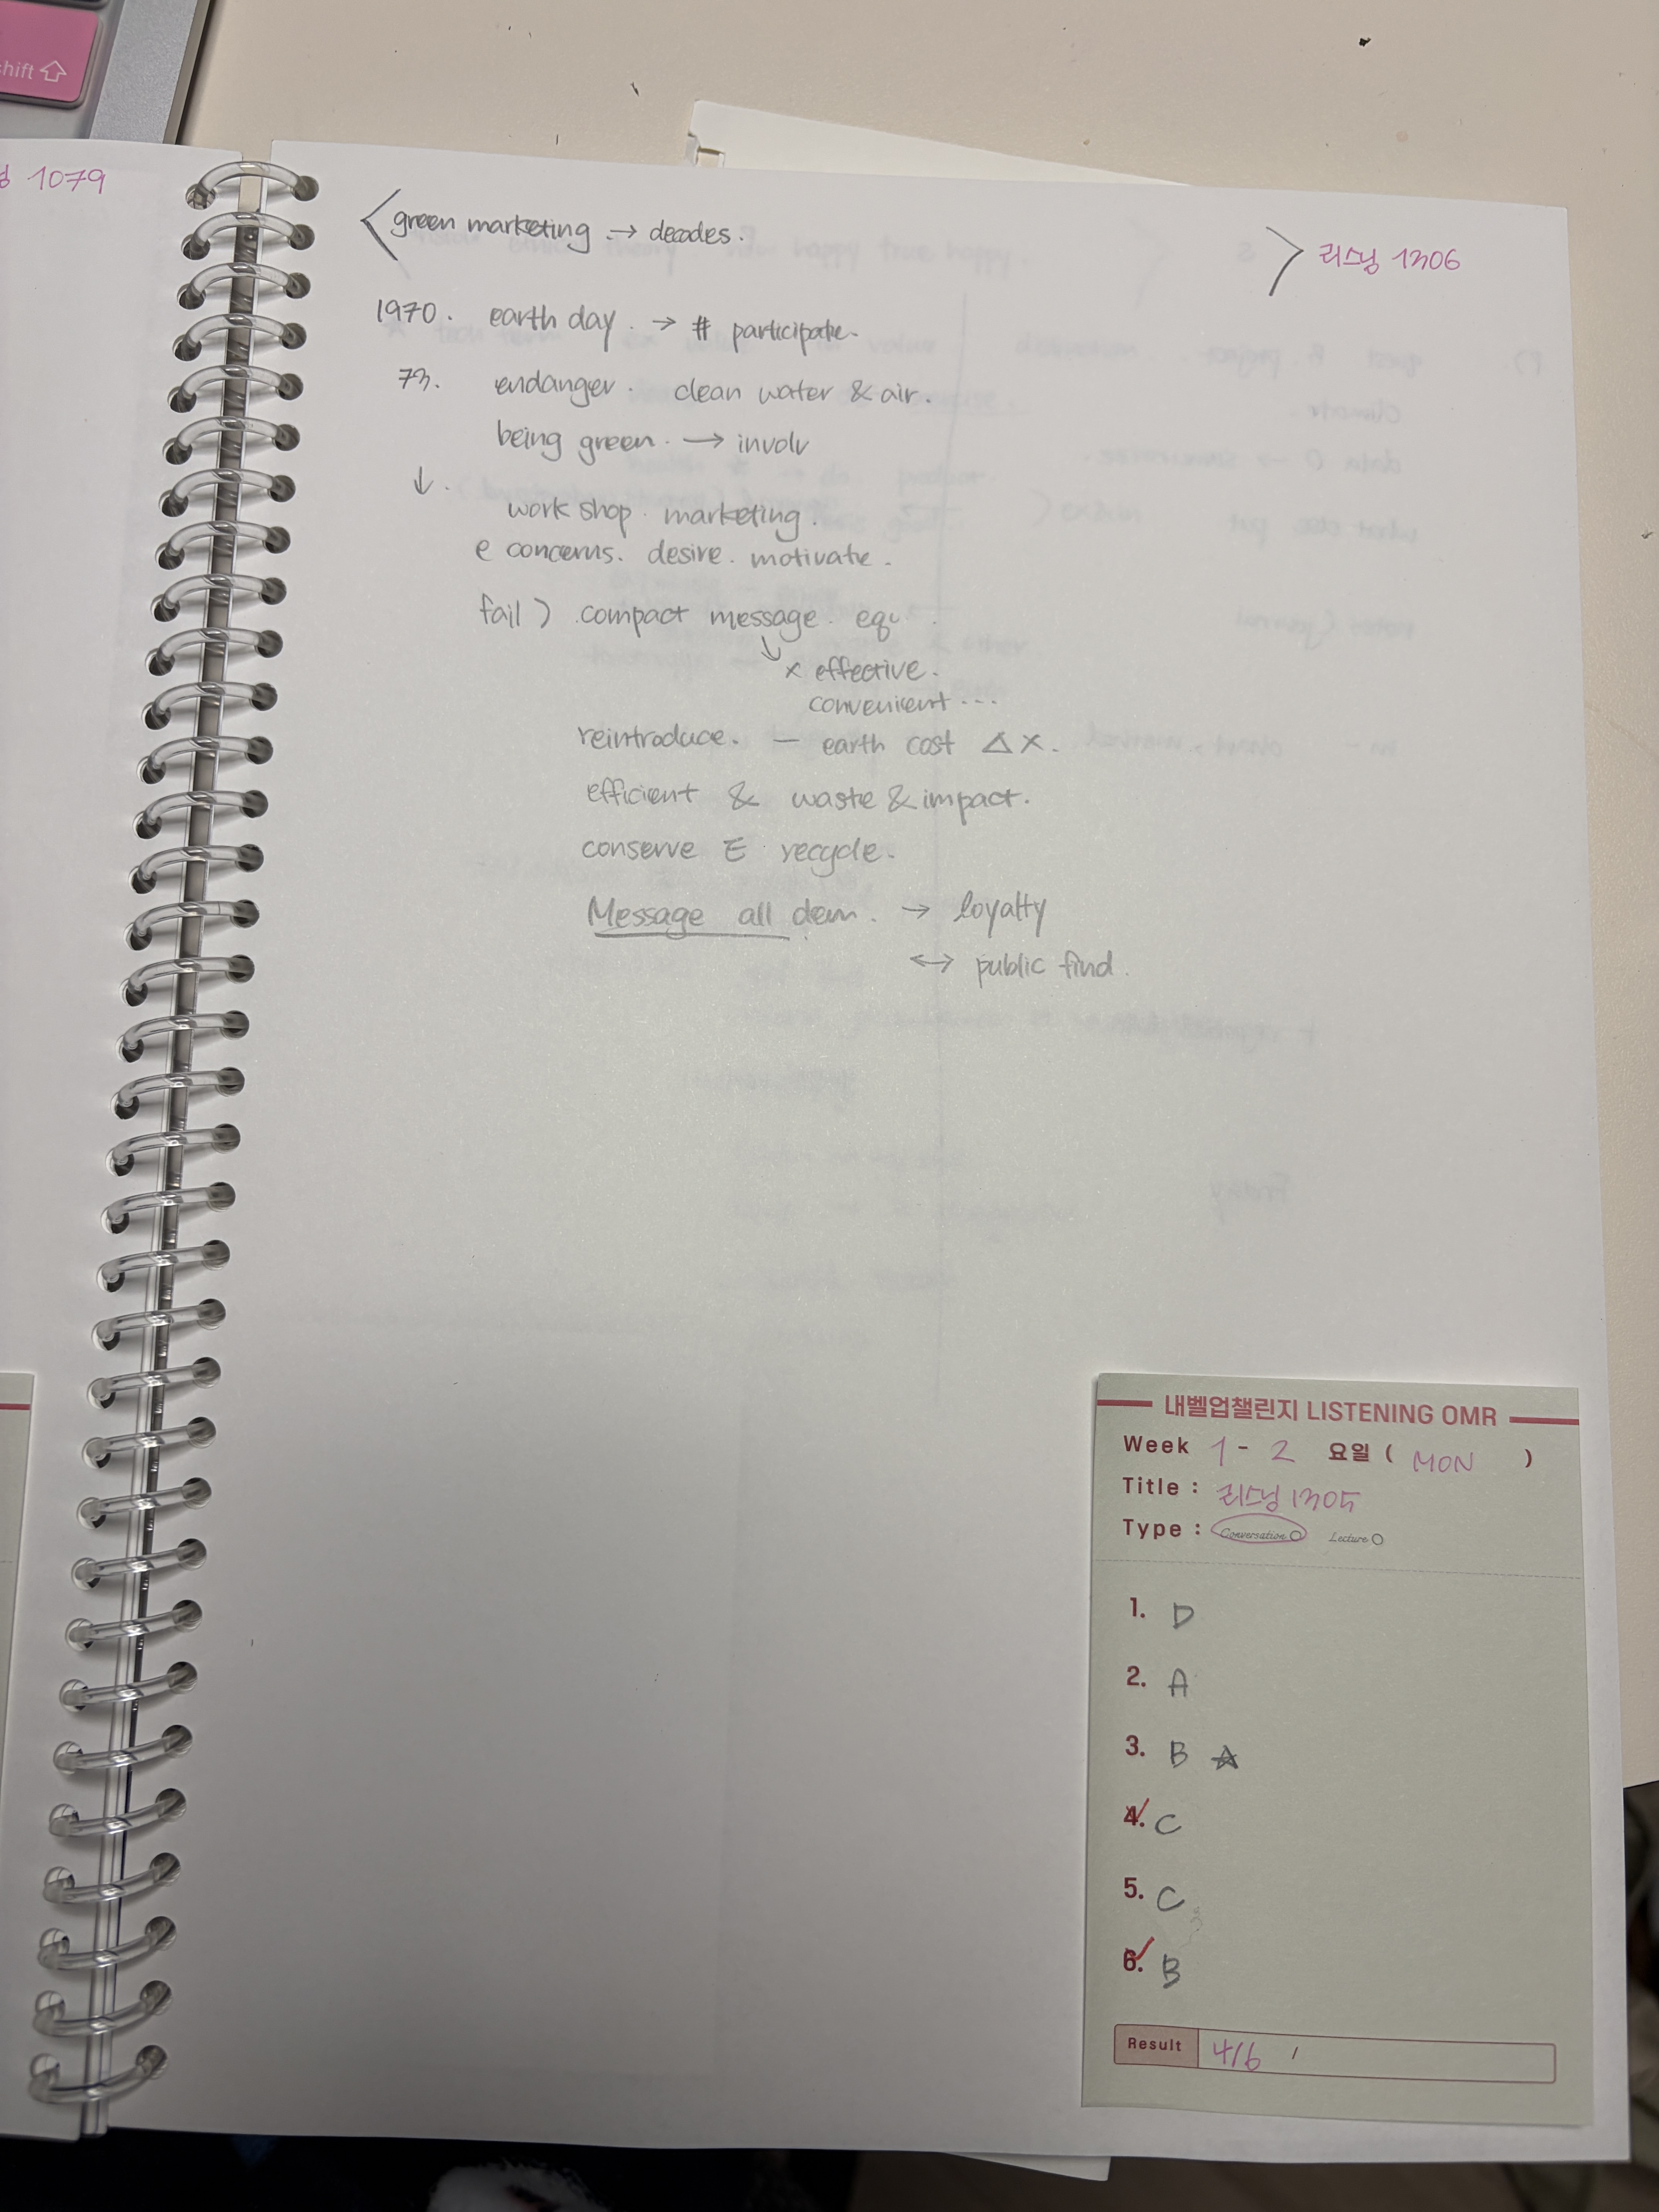 shift
1079
green marketing → decades.
리스닝 1306
1970. earth day. → # participate.
73. endanger. clean water & air.
being green. → involv
↓.
work shop. marketing.
e concerns. desire. motivate.
fail) .compact message. equ
↓ × effective.
convenient...
reintroduce. — earth cost △ ×.
efficient & waste & impact.
conserve E recycle.
Message all dem. → loyalty
↔ public find.
내벨업챌린지 LISTENING OMR
Week 1 - 2 요일 ( MON )
Title : 리스닝 1305
Type : Conversation Lecture
1. D
2. A
3. B ☆
4. C
5. C
6. B
Result 4/6 /